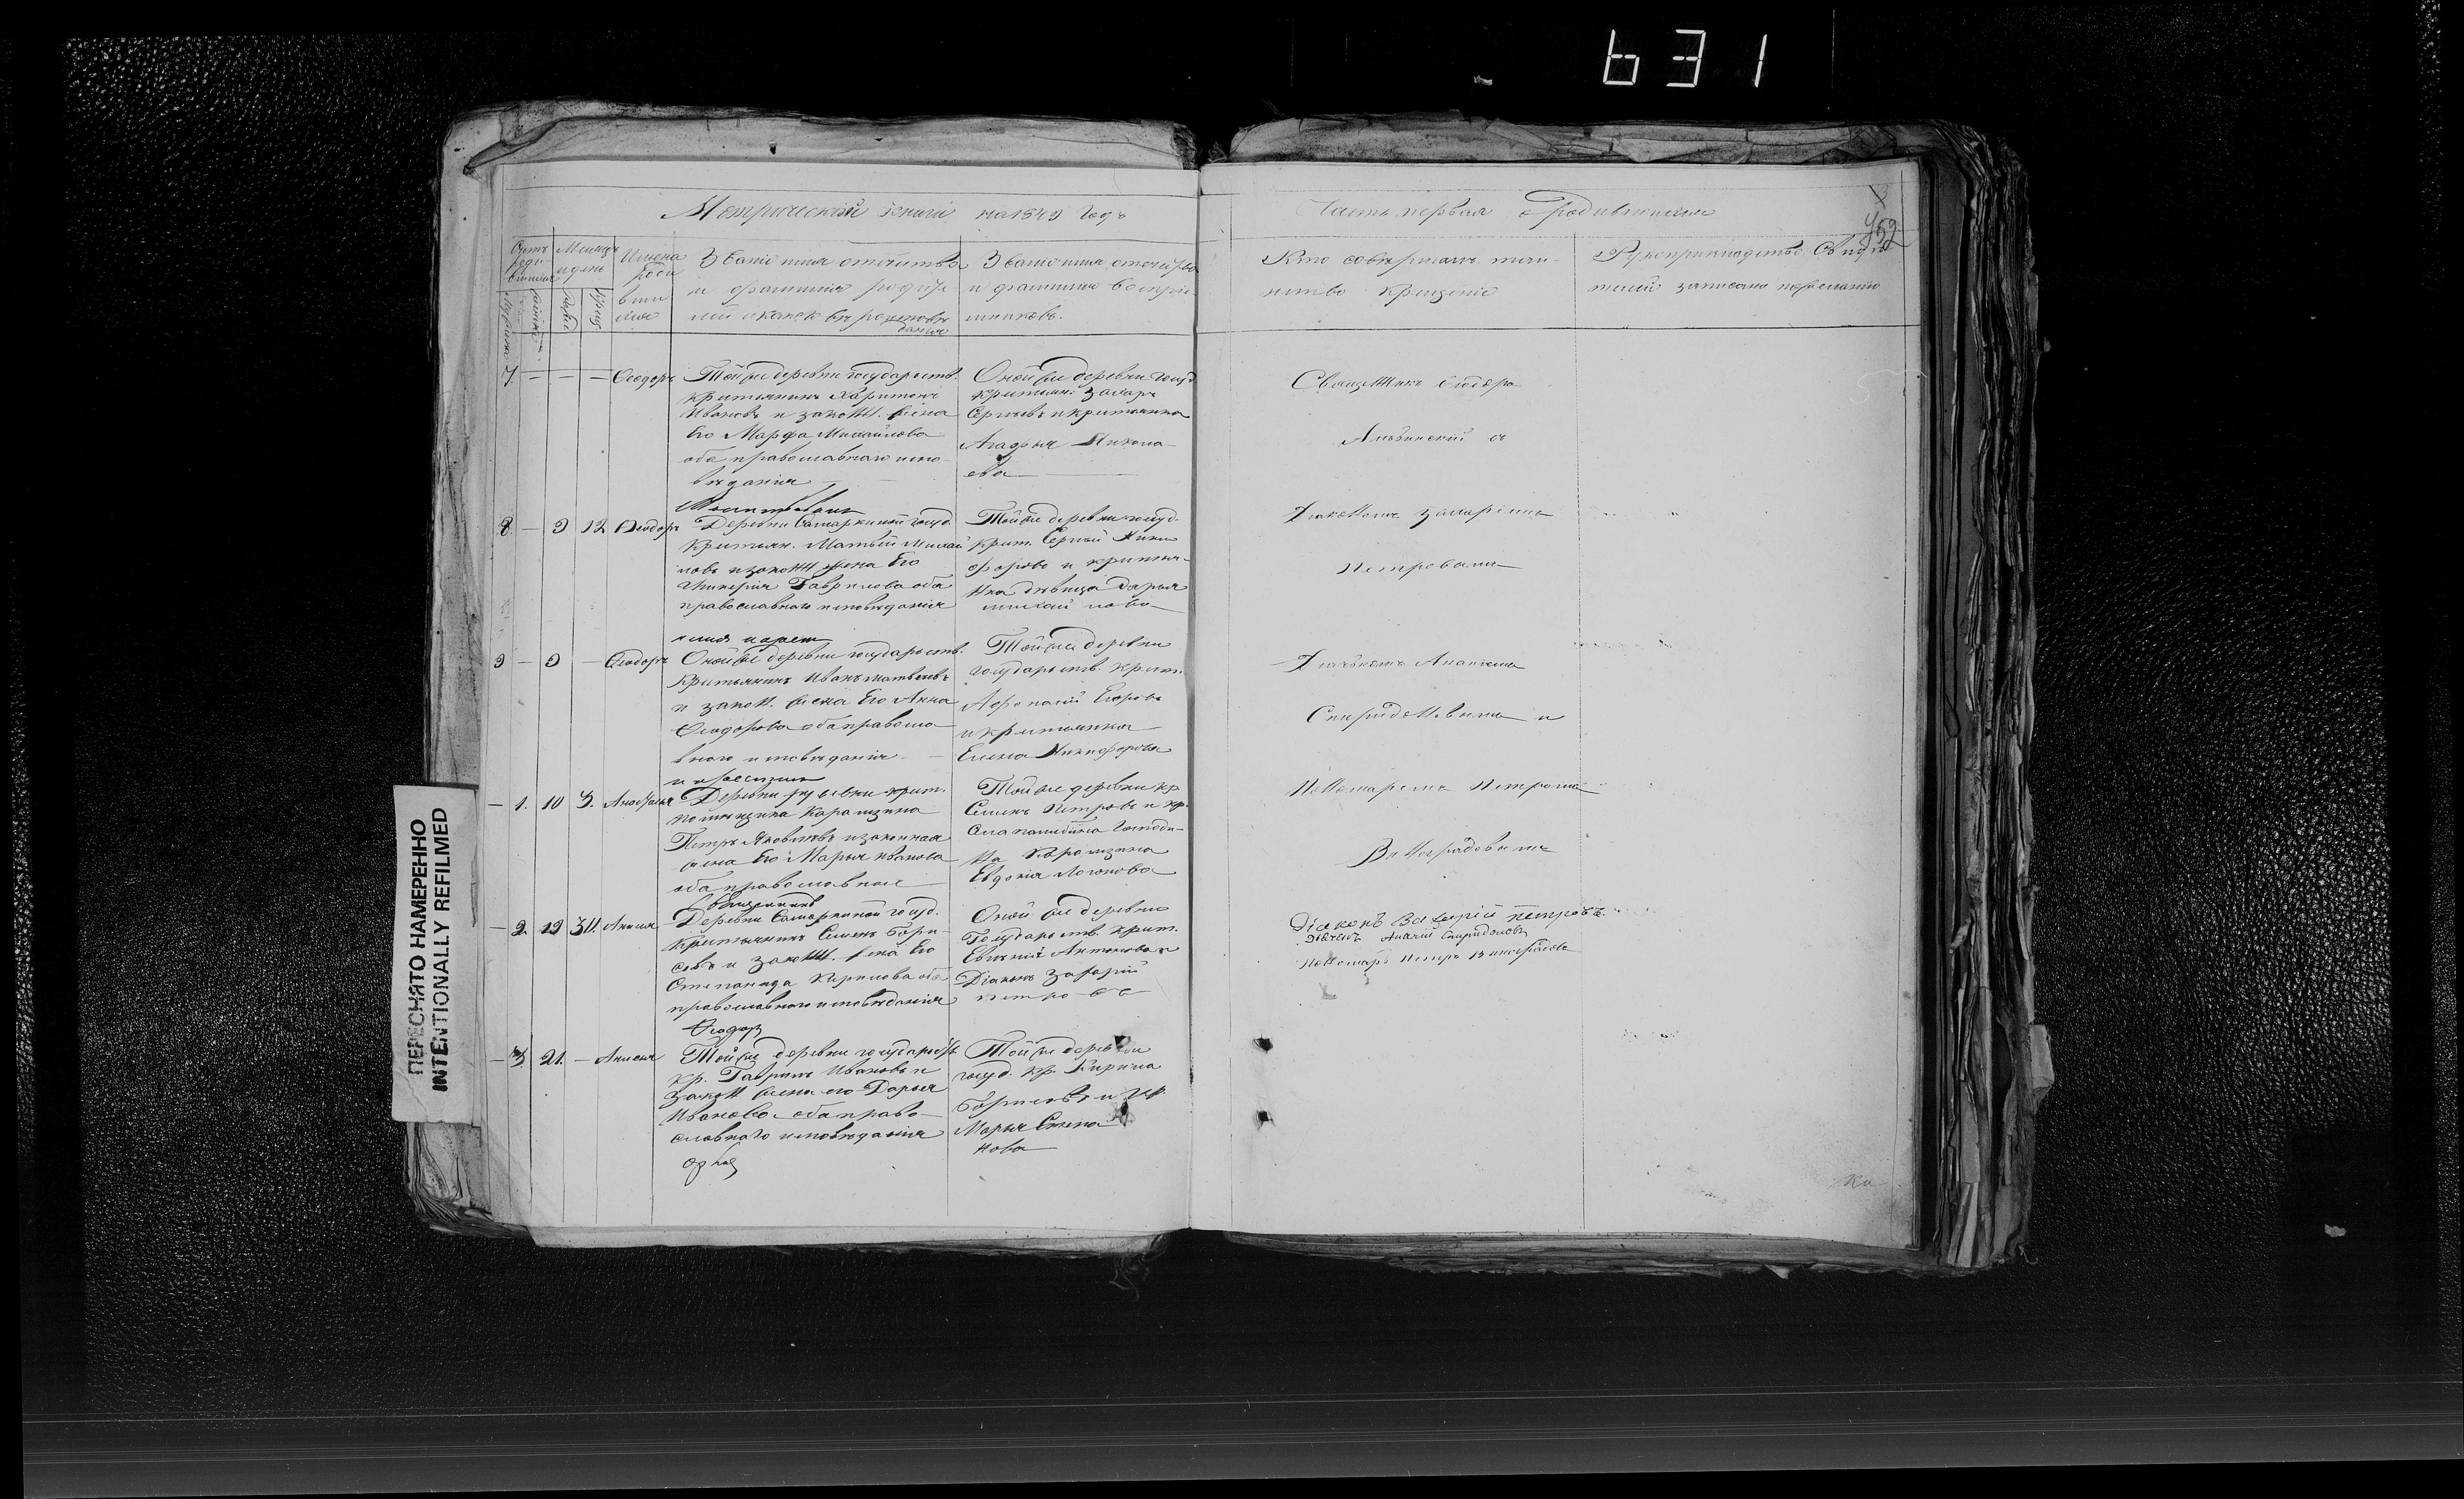 631
Метрической книги на 1849 годъ
Часть первая о родившихся
452
Счетъ роди вшихся
Месяцъ и день
Имена роди вших ся
Званiе имя отчитво и фамилия родите лей и какого вероисповѣ данiя
Званiе имя отчество и фамилия воспри емниковъ.
Кто совершалъ таин ство крещенiе
Рукоприкладство свидѣ телей записано по желанiю
7. — — — Ѳеодоръ
Той же деревни государств.
крестьянинъ Харитонъ
Ивановъ и законн. жена
Его Марфа Михайлова
оба православнаго испо
вѣданiя
Оной же деревни госуд
крестьян. Захаръ
Сергѣевъ и крестьянка
Агафья Никола
ева
Священникъ Ѳеодоръ
Альбинский съ
8. — 9 12 Ѳеодоръ
Деревни Самаркиной госуд.
крестьян. Матвѣй Михай
ловъ и законн жена Его
Гликерiя Гаврилова оба
православнаго исповѣданiя
Той же деревни госуд.
крест. Сергѣй Ники
форовъ и крестья
нка дѣвица Дарья
Михайлова
Дiакономъ Захарiемъ
Петровымъ
9 — 9 — Ѳеодоръ
Оной же деревни государств.
крестьянинъ Иванъ Матвѣевъ
и законн. жена Его Анна
Ѳеодорова оба правосла
внаго исповѣданiя
Той же деревни
государств. крест.
Афонасiй Егоровъ
и крестьянка
Елена Никифорова
Дьячкомъ Ананiемъ
Спиридоновымъ и
— 1. 10 3. Анастасiя
Деревни крест.
помѣщика Карамзина
Петръ Яковлевъ и законная
жена Его Марья Иванова
оба православные
Той же деревни кр
Семенъ Петровъ и кр.
господи
на Карамзина
Евдокiя Логинова
Пономаремъ Петромъ
Виноградовымъ
Священникъ
— 2. 19 30. Анисья
Деревни Самаркиной госуд.
крестьянинъ Семенъ Бори
совъ и законн. жена Его
Степанида Кирилова оба
православнаго исповѣданiя
Оной же деревни
Государств. крест.
Евгенiй Антоновъ и
Дiаконъ Захарiй
Петровъ
Дiаконъ Захарiй Петровъ
Дьячекъ Ананiй Спиридоновъ
Пономарь Петръ Виноградовъ
Ѳеодоръ
— 3. 21. — Анисья
Той же деревни государств
кр. Гаврилъ Ивановъ и
законн жена его Дарья
Иванова оба право
славнаго исповѣданiя
Той же деревни
госуд. кр. Кирила
Борисовъ и кр.
Марья Степа
нова
ПЕРЕСНЯТО НАМЕРЕННО
INTENTIONALLY REFILMED